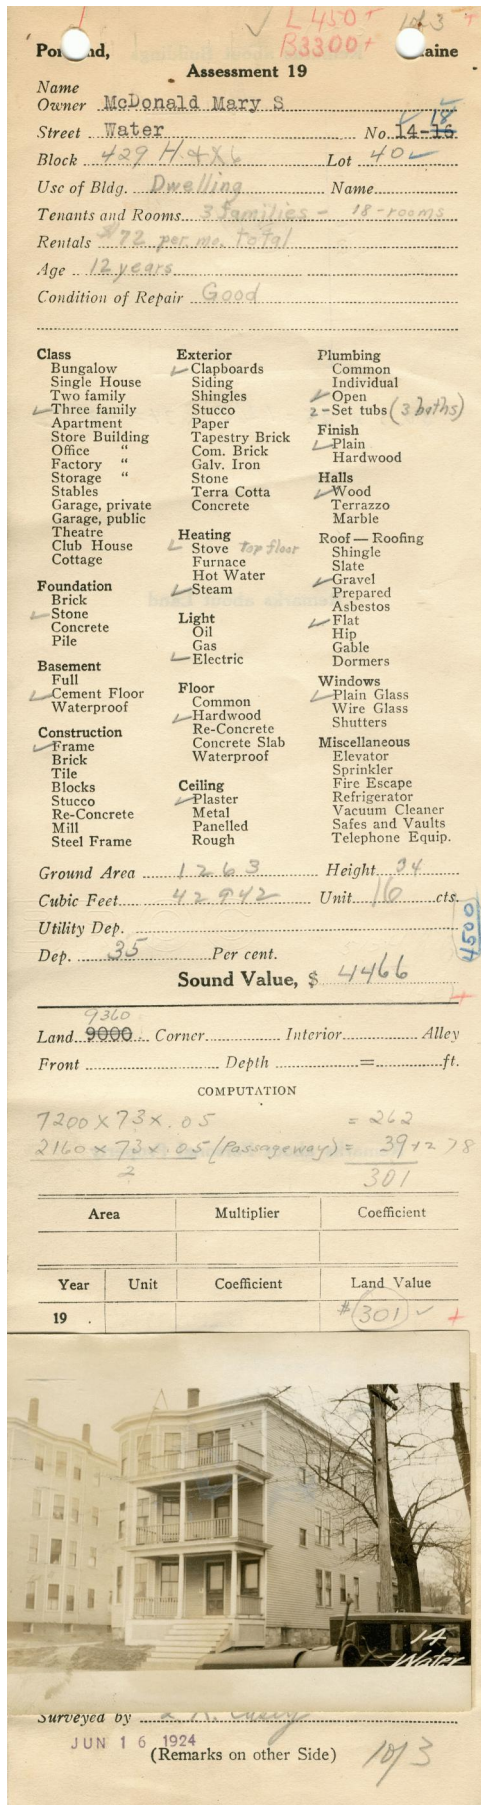 L 450 +
B 3300 +
Assessment 19
Name
Owner McDonald Mary S
Street Water No. 14-16 18
Block 429 H 4 X 6 Lot 40
Use of Bldg. Dwelling Name
Tenants and Rooms 3 families - 18-rooms
Rentals $72 per mo. total
Age 12 years
Condition of Repair Good
Class
Bungalow
Single House
Two family
Three family
Apartment
Store Building
Office "
Factory "
Storage "
Stables
Garage, private
Garage, public
Theatre
Club House
Cottage
Foundation
Brick
Stone
Concrete
Pile
Basement
Full
Cement Floor
Waterproof
Construction
Frame
Brick
Tile
Blocks
Stucco
Re-Concrete
Mill
Steel Frame
Exterior
Clapboards
Siding
Shingles
Stucco
Paper
Tapestry Brick
Com. Brick
Galv. Iron
Stone
Terra Cotta
Concrete
Heating
Stove top floor
Furnace
Hot Water
Steam
Light
Oil
Gas
Electric
Floor
Common
Hardwood
Re-Concrete
Concrete Slab
Waterproof
Ceiling
Plaster
Metal
Panelled
Rough
Plumbing
Common
Individual
Open
2 - Set tubs (3 baths)
Finish
Plain
Hardwood
Halls
Wood
Terrazzo
Marble
Roof — Roofing
Shingle
Slate
Gravel
Prepared
Asbestos
Flat
Hip
Gable
Dormers
Windows
Plain Glass
Wire Glass
Shutters
Miscellaneous
Elevator
Sprinkler
Fire Escape
Refrigerator
Vacuum Cleaner
Safes and Vaults
Telephone Equip.
Ground Area 1263 Height 34
Cubic Feet 42942 Unit 16 cts.
Utility Dep.
4500
Dep. 35 Per cent.
Sound Value, $ 4466
9360
Land 9000 Corner Interior Alley
Front Depth = ft.
COMPUTATION
7200 X 73 X .05 = 262
2160 X 73 X .05 (Passageway) = 39
2
301
Area Multiplier Coefficient
Year Unit Coefficient Land Value
19 $ 301
14
Water
Surveyed by
JUN 16 1924
(Remarks on other Side)
1 of 3